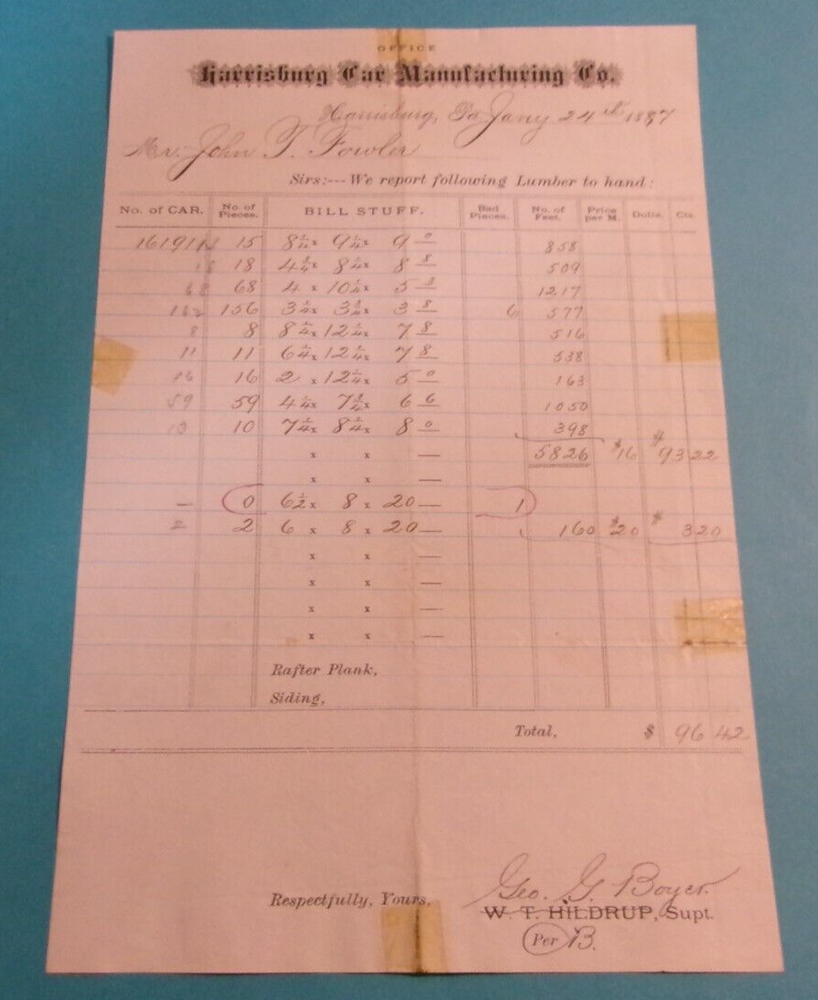 OFFICE
Harrisburg Car Manufacturing Co.
Harrisburg, Pa. Jany 24th 1887
Mr. John T. Fowler
Sirs:--- We report following Lumber to hand:
No. of CAR. No. of Pieces. BILL STUFF. Bad Pieces. No. of Feet. Price per M. Dolls. Cts.
16191 15 8 x 9 x 9 0 858
18 4 x 8 x 8 8 509
68 68 4 x 10 x 5 1217
162 156 3 x 3 x 3 8 6 577
8 8 8 x 12 x 7 8 516
11 11 6 x 12 x 7 8 538
16 16 2 x 12 x 5 0 163
59 59 4 x 7 x 6 6 1050
10 10 7 x 8 x 8 0 398
x x — 5826 $16 $93 22
x x —
— 0 6½ x 8 x 20 — 1
2 2 6 x 8 x 20 — 160 $20 $ 3 20
x x —
x x —
x x —
x x —
Rafter Plank,
Siding,
Total, $ 96 42
Geo. G. Boyer
Respectfully, Yours, W. T. HILDRUP, Supt.
Per B.